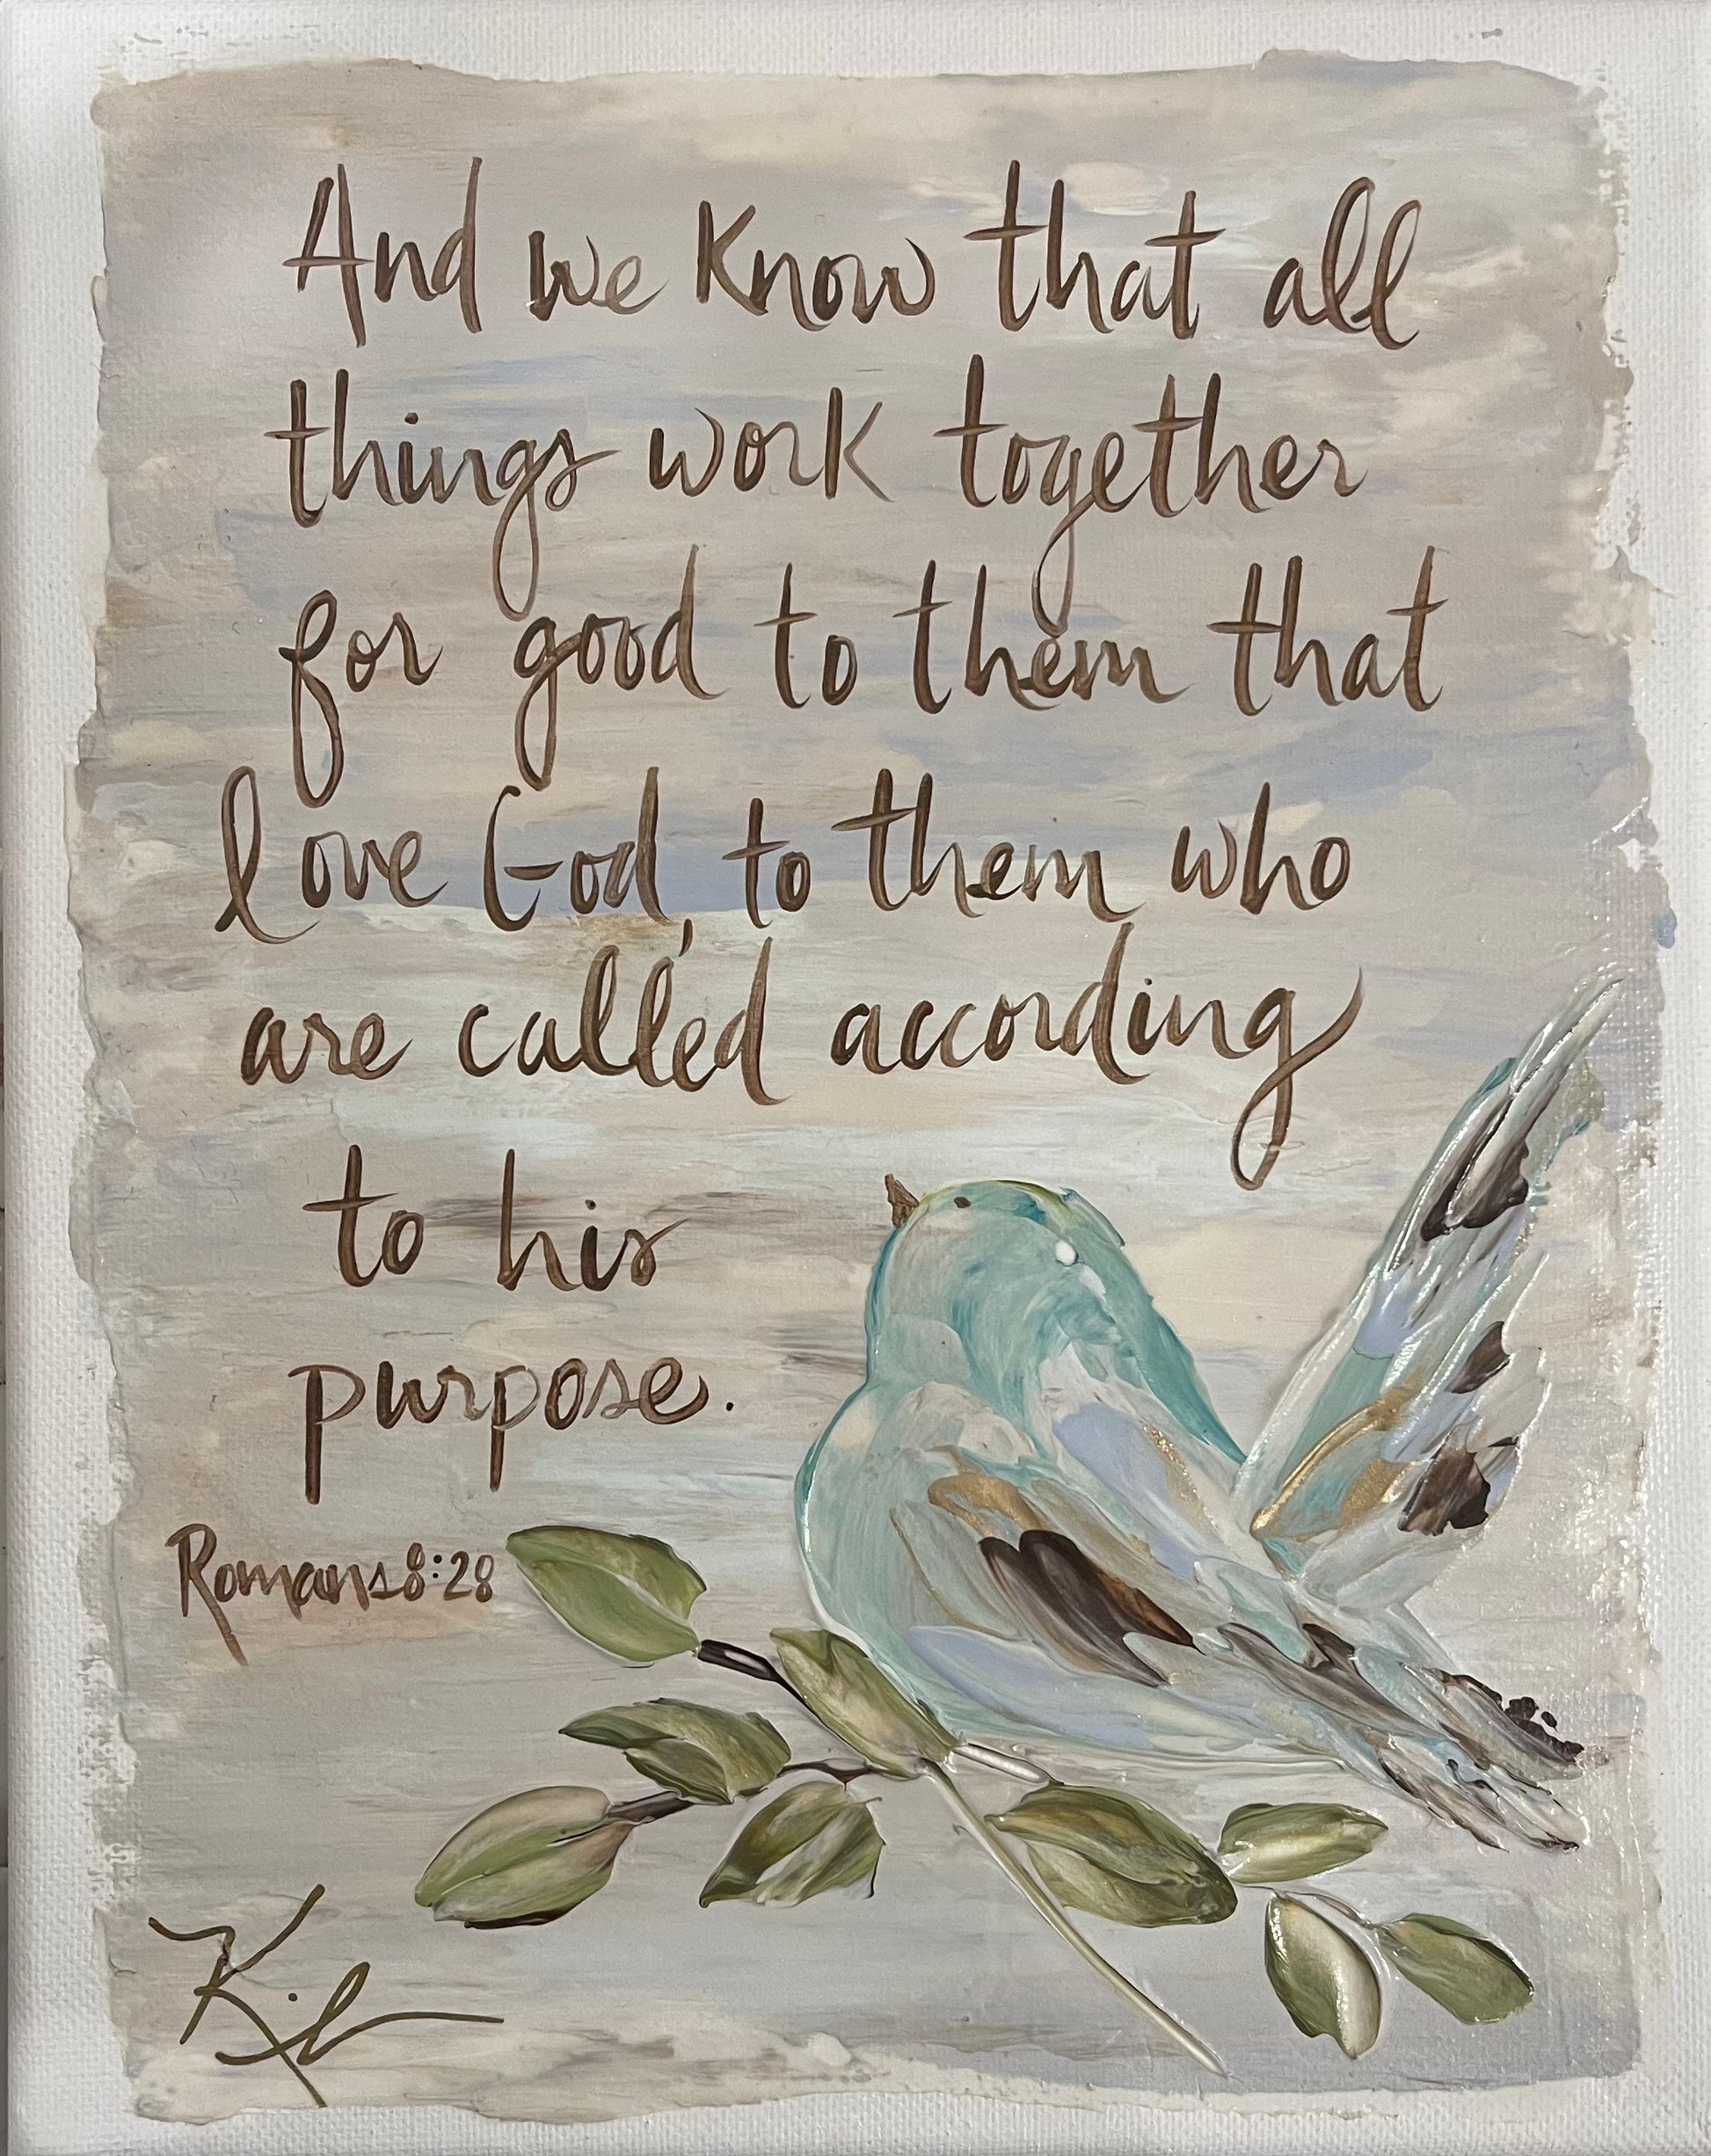 And we know that all
things work together
for good to them that
love God, to them who
are called according
to his
purpose.
Romans 8:28